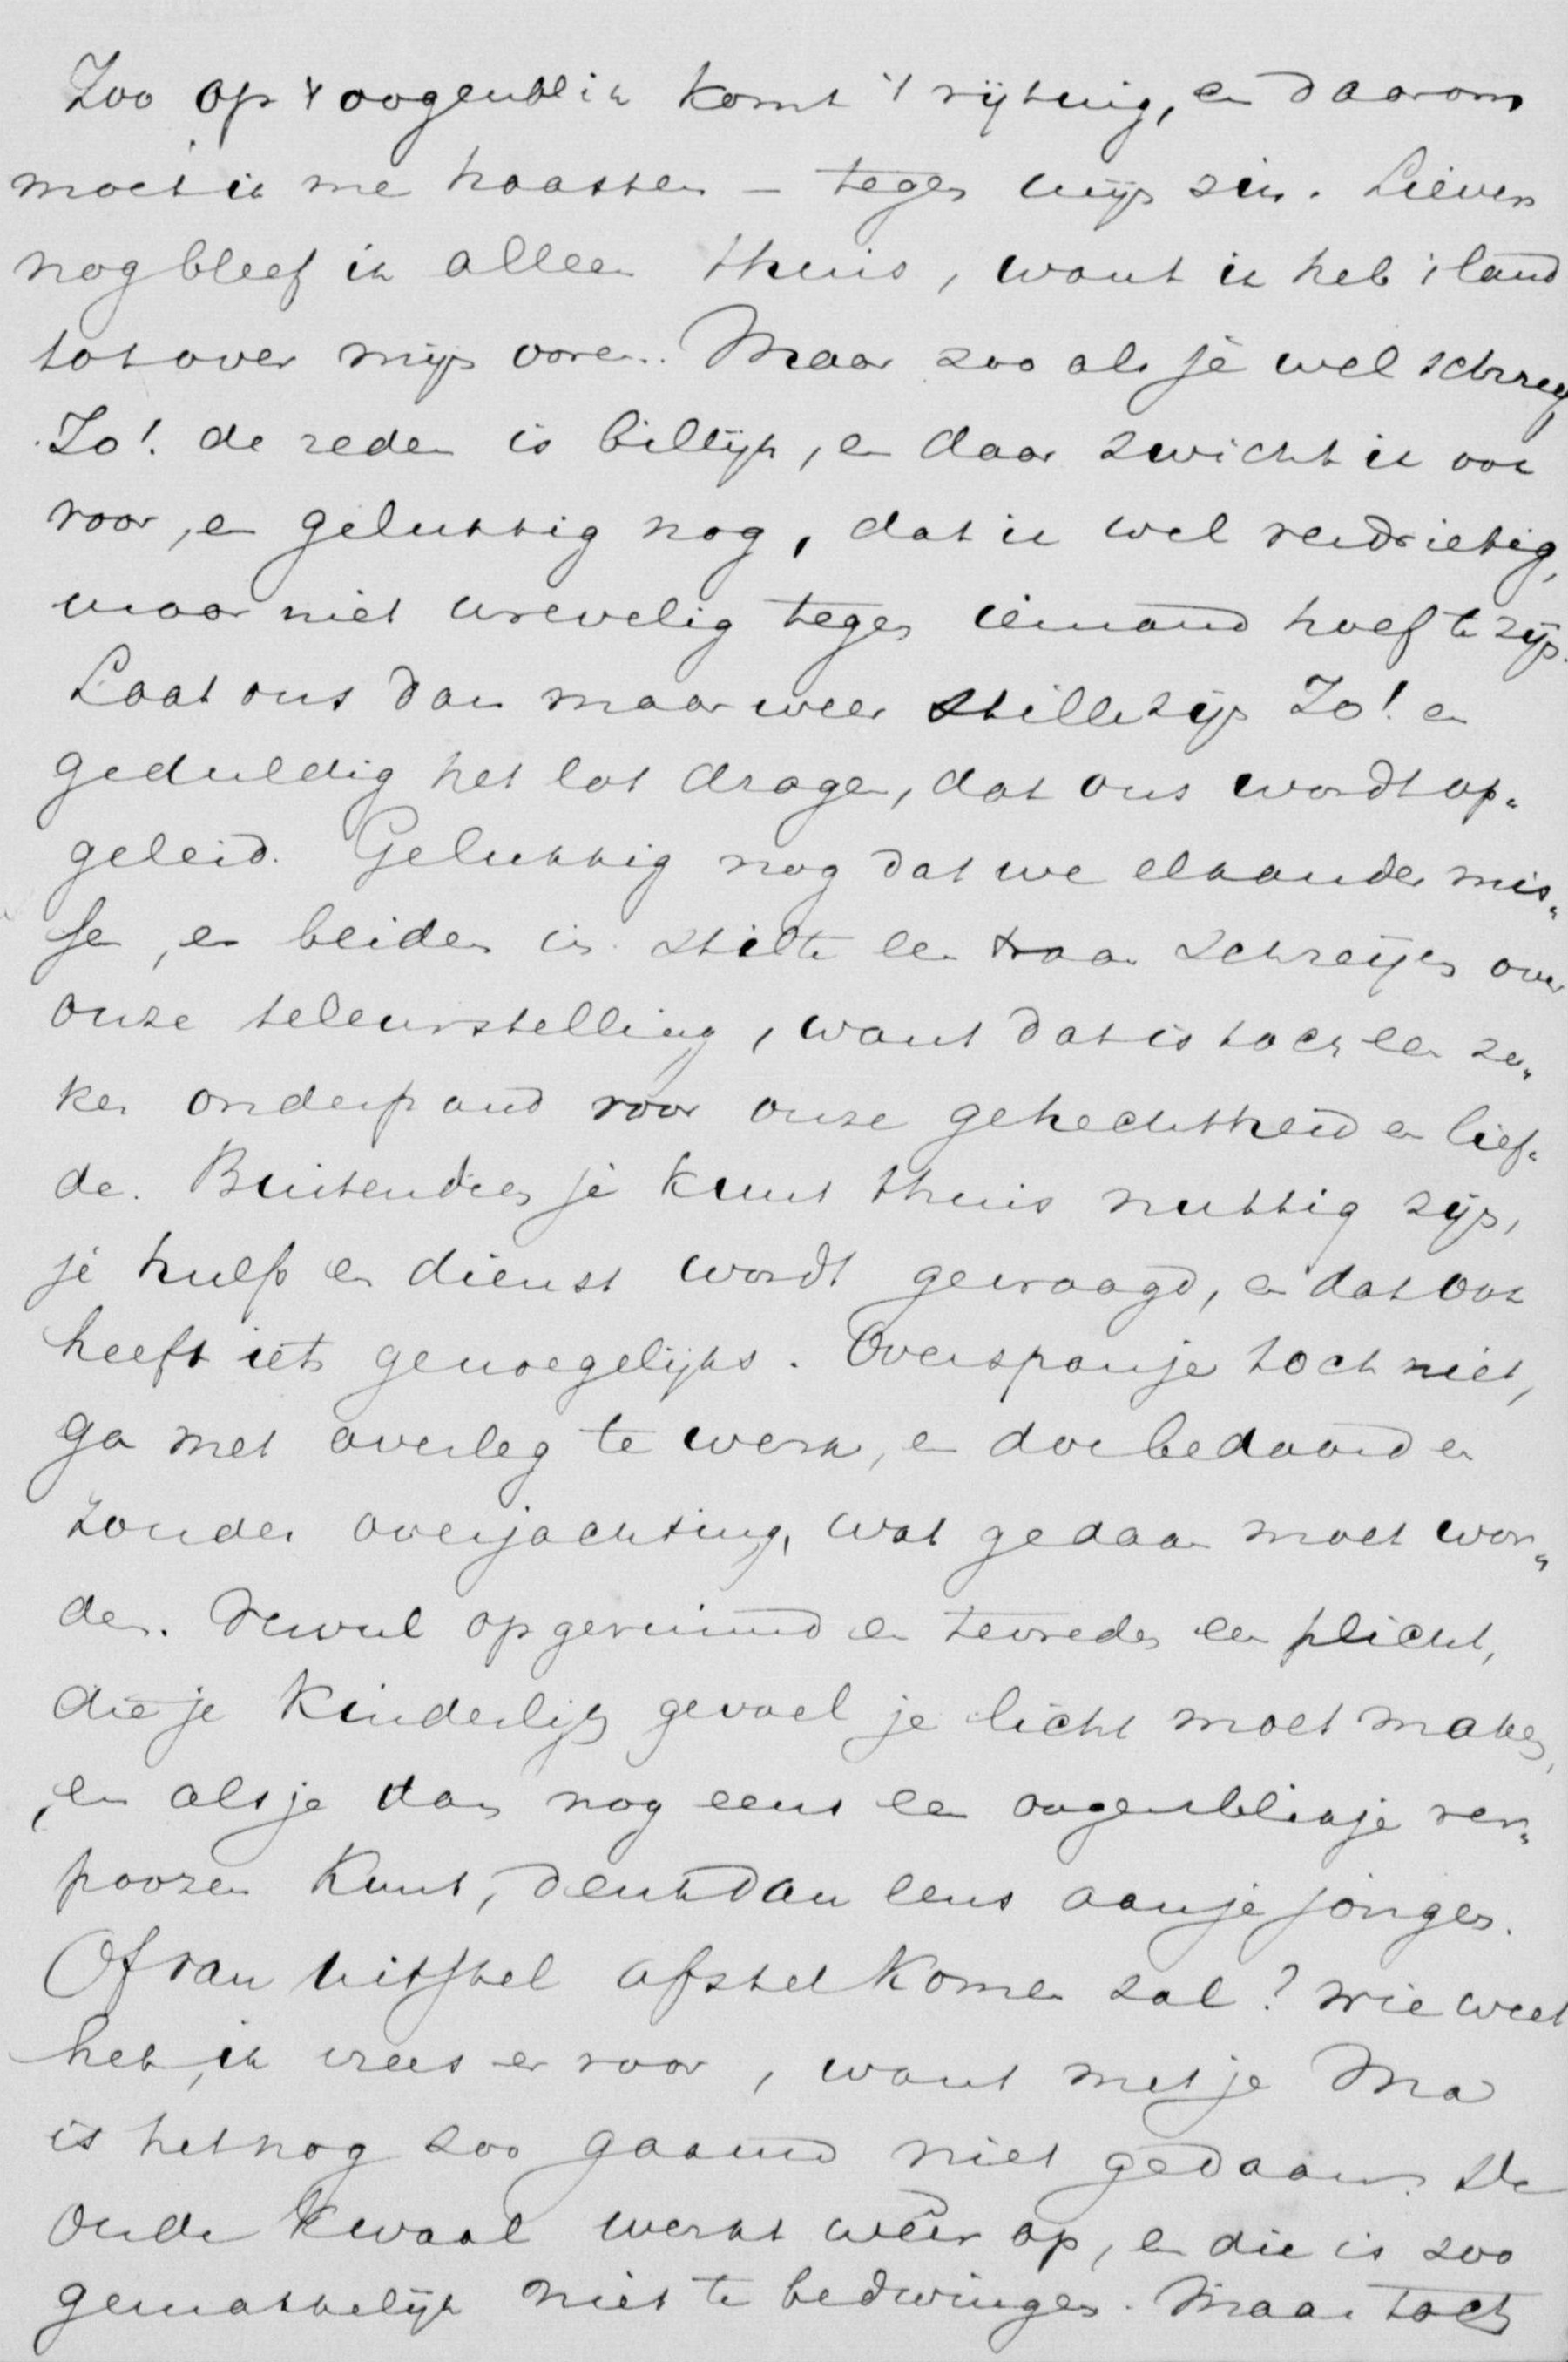 Zoo op 't oogenblik komt 't rijtuig, en daarom
moet ik me haasten – tegen mijn zin. Liever
nog bleef ik alleen thuis, want ik heb 't land
tot over mijn ooren. Maar zoo als je wel schreef
Zo! de reden is billijk, en daar zwicht ik ook
voor, en gelukkig nog, dat ik wel verdrietig,
maar niet wrevelig tegen iemand hoef te zijn.
Laat ons dan maar weer stille zijn Zo! en
geduldig het lot dragen, dat ons wordt op„
geleid. Gelukkig nog dat we elkander mis„
sen, en beiden in stilte een traan schreijen over
onze teleurstelling, want dat is toch een ze„
ker onderpand voor onze gehechtheid en lief„
de. Buitendien je kunt thuis nuttig zijn,
je hulp en dienst wordt gevraagd, en dat ook
heeft iets genoegelijks. Overspan je toch niet,
ga met overleg te werk, en doe bedaard en
zonder overjachting, wat gedaan moet wor„
den. Vervul opgeruimd en tevreden een plicht,
die je kinderlijk gevoel je licht moet maken,
en als je dan nog eens een oogenblikje ver„
poozen kunt, denk dan eens aan je jongen.
Of van uitstel afstel komen zal? wie weet
het, ik vrees er voor, want met je Ma
is het nog zoo gaand niet gedaan. De
oude kwaal werkt wêer op, en die is zoo
gemakkelijk niet te bedwingen. Maar toch